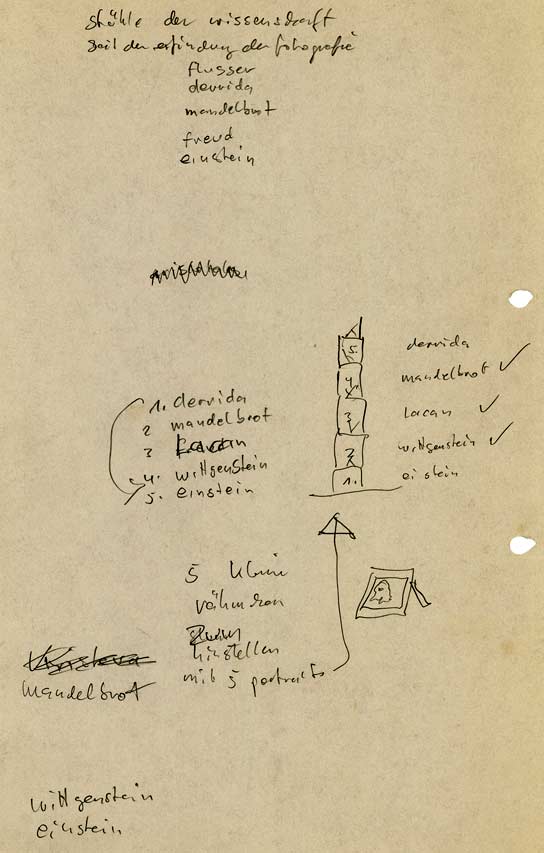 stühle der wissenschaft
seit der erfindung der fotografie
flusser
derrida
mandelbrot
freud
einstein
1. derrida
2 mandelbrot
3 Lacan
4. wittgenstein
5. einstein
5.
4.
3
2
1.
derrida
mandelbrot ✓
Lacan ✓
wittgenstein ✓
ei stein
5 kleine
rähmchen
hinstellen
mit 5 portraits
mandelbrot
wittgenstein
einstein